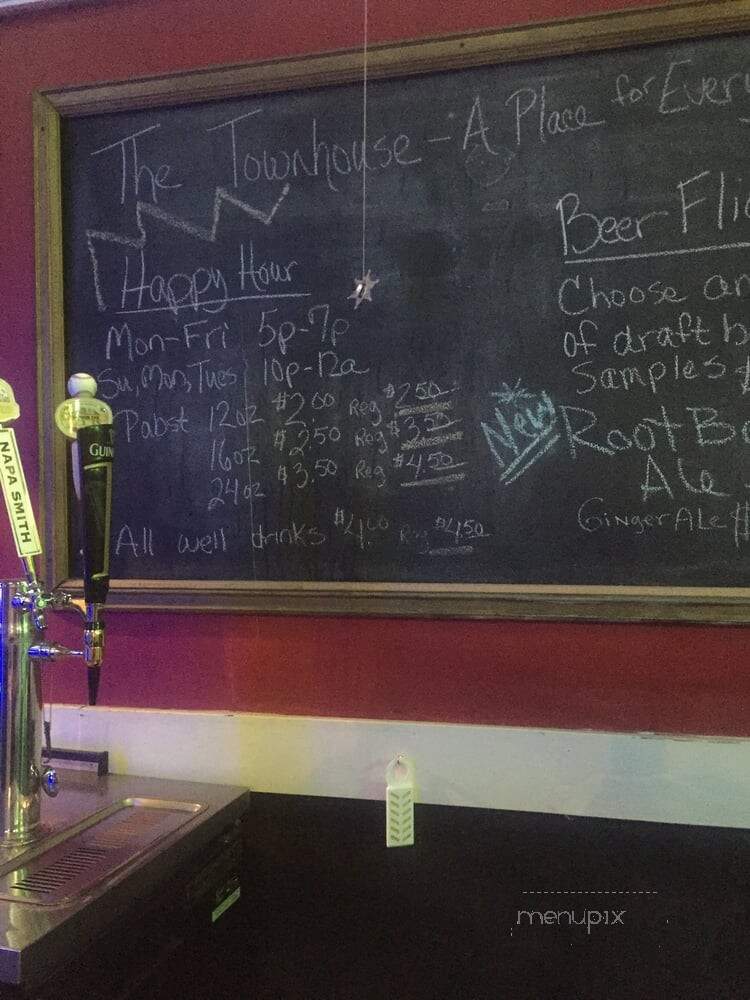 The Townhouse - A Place for Ever
Happy Hour
Mon-Fri 5p-7p
Su, Mon, Tues 10p-12a
Pabst 12oz $2.00 Reg $2.50
16oz $2.50 Reg $3.50
24oz $3.50 Reg $4.50
All well drinks $4.00 Reg $4.50
Beer Fli
Choose an
of draft b
Samples $
New Root Be
Ale
Ginger Ale $
NAPA SMITH
GUIN
menupix